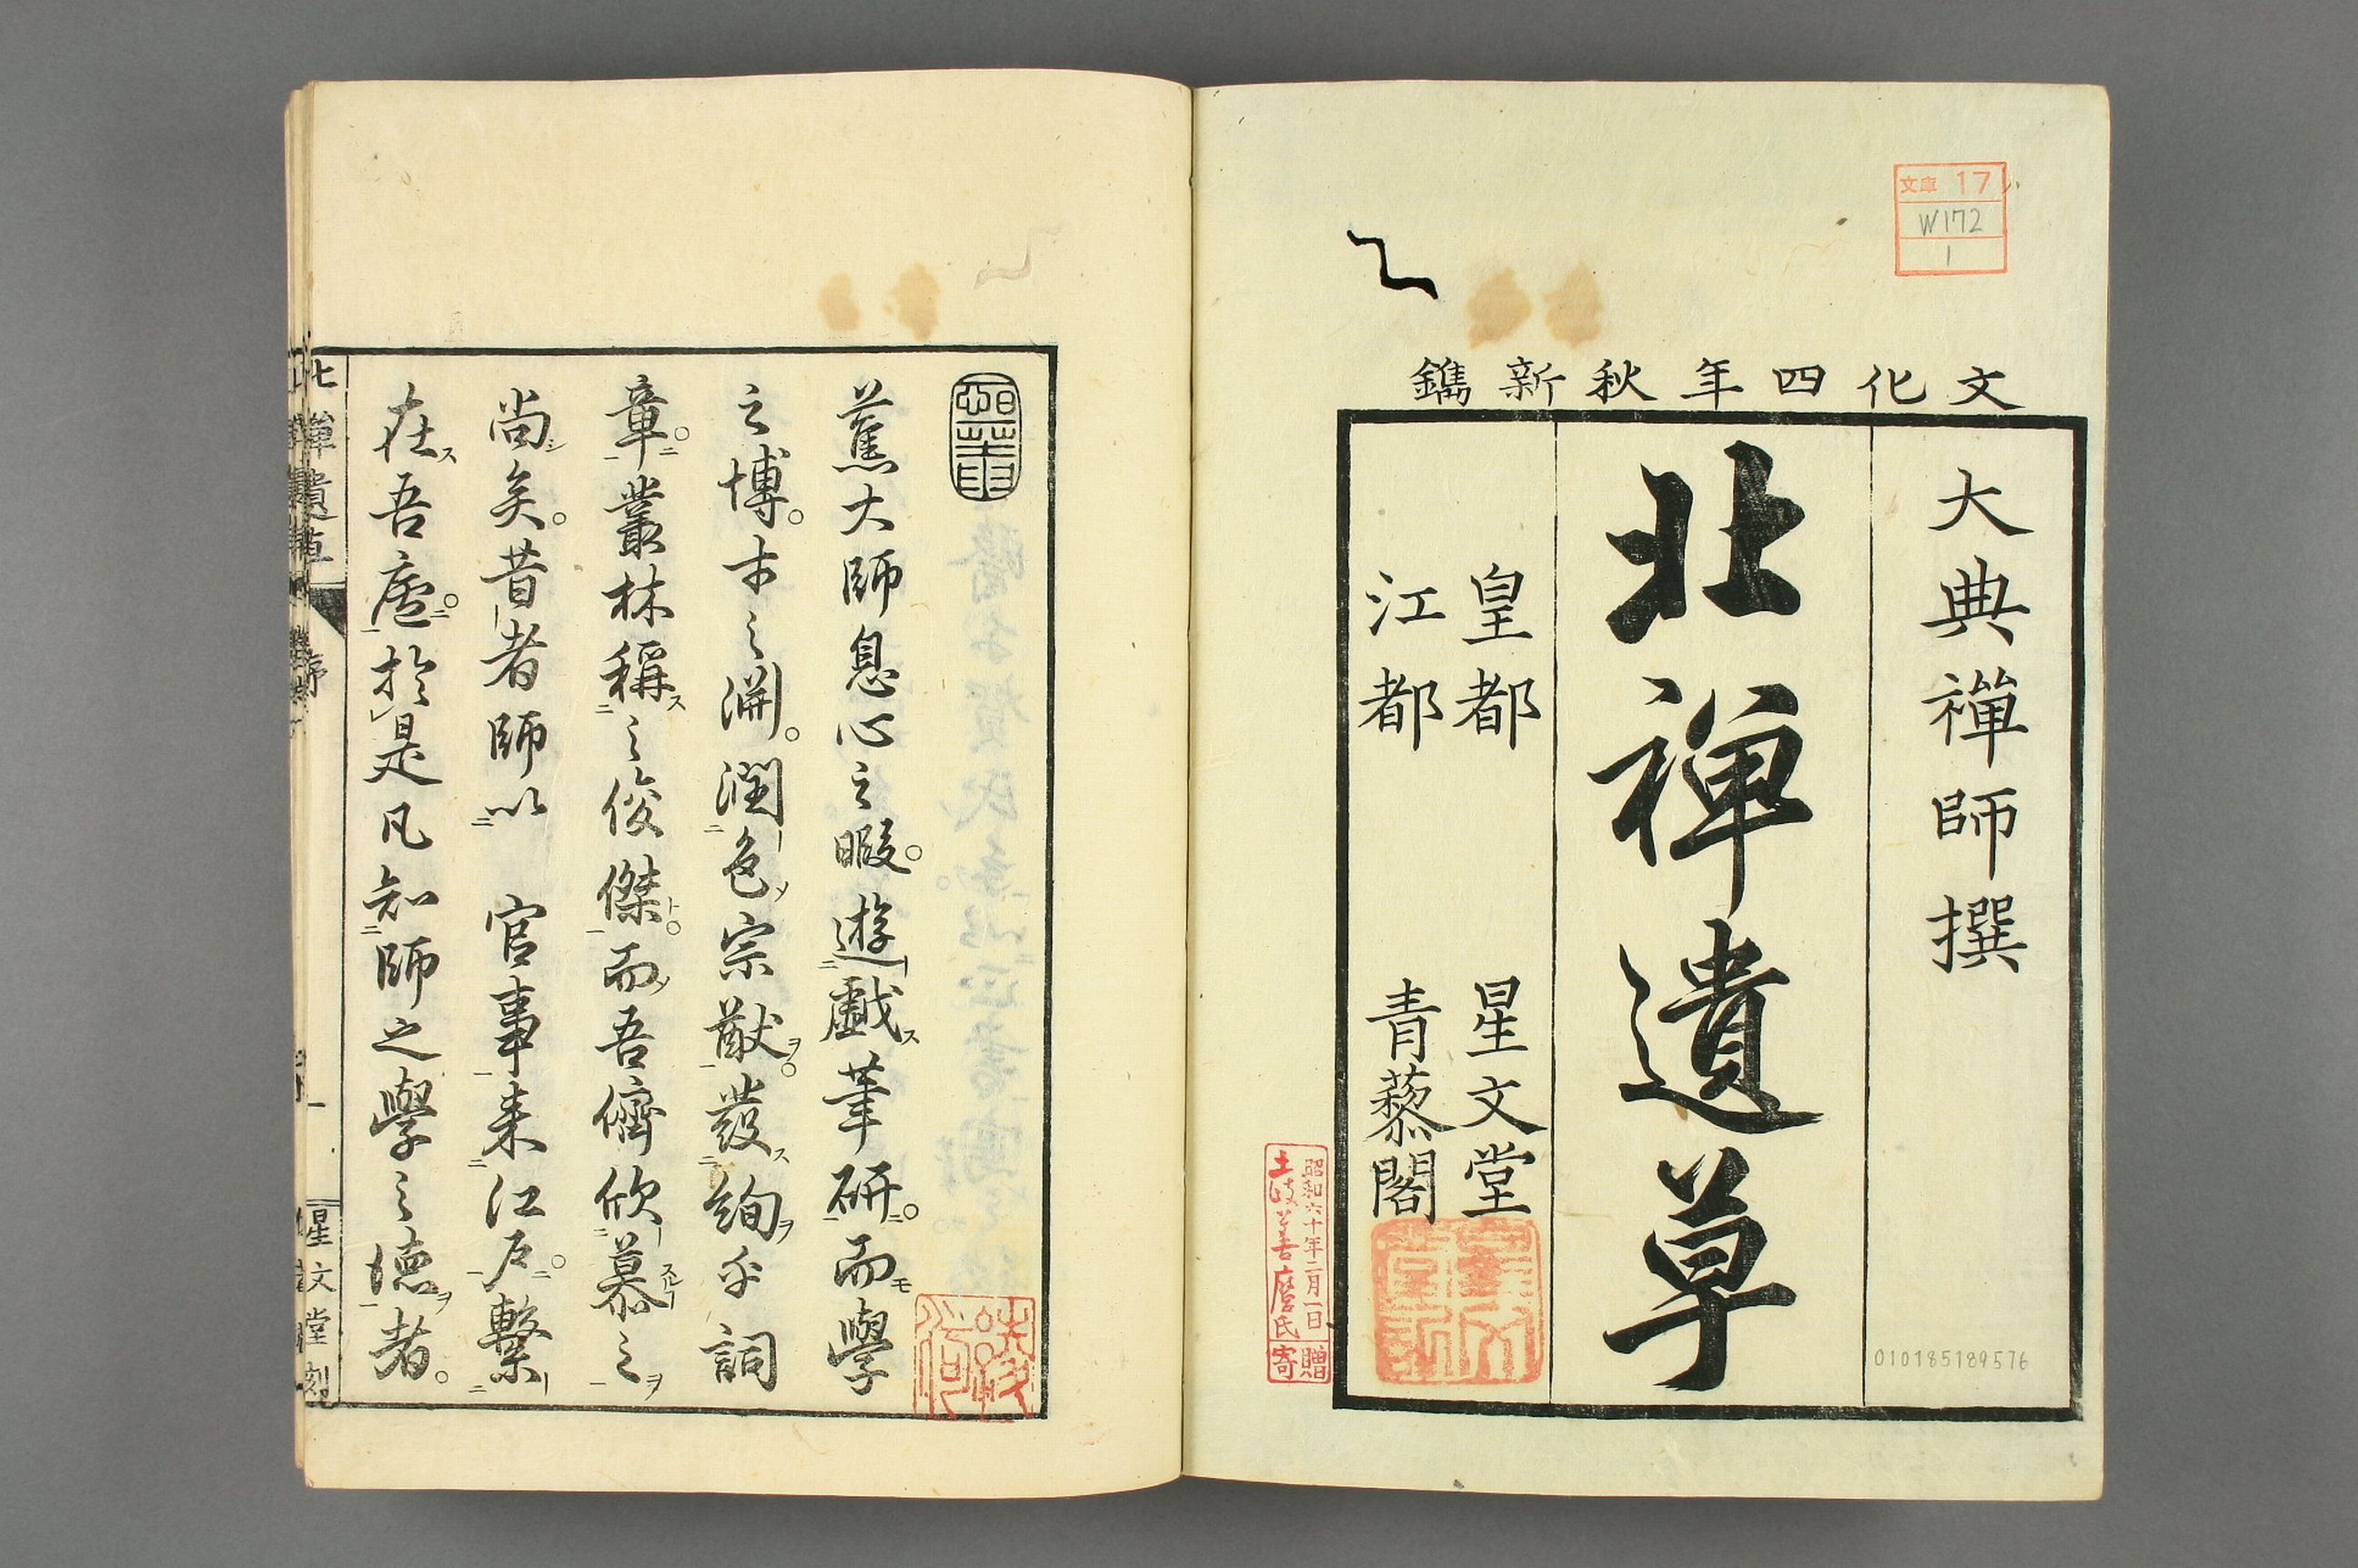 文庫 17
W172
1
文化四年秋新鐫
大典禪師撰
北禪遺草
皇都 星文堂
江都 青藜閣
010185189576
昭和六十年二月一日
土岐善麿氏
寄贈
蕉大師息心之暇遊戲筆研而學
之博才之淵潤色宗猷發絢乎詞
章叢林稱之俊傑而吾儕欣慕之
尚矣昔者師以 官事来江戶繫
在吾廬於是凡知師之學之德者
北禪遺草 序 一 星文堂刻